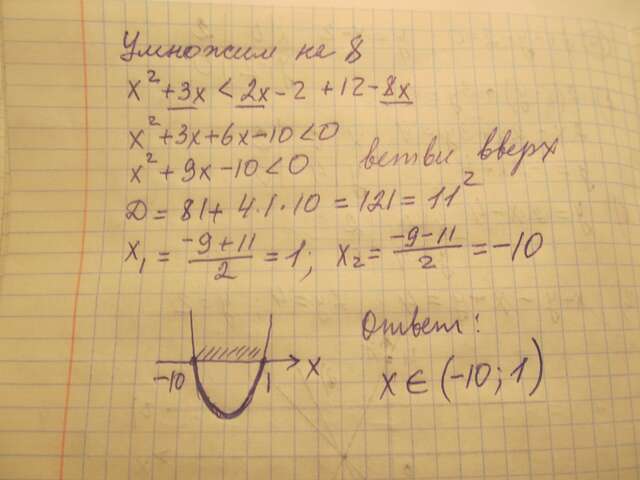 Умножим на 8
x² + 3x < 2x - 2 + 12 - 8x
x² + 3x + 6x - 10 < 0
x² + 9x - 10 < 0 ветви вверх
D = 81 + 4·1·10 = 121 = 11²
x₁ = (-9+11)/2 = 1; x₂ = (-9-11)/2 = -10
Ответ:
-10 1 x
x ∈ (-10; 1)